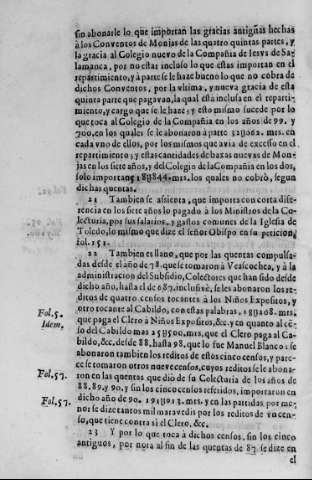 sin abonarle lo que importan las gracias antiguas hechas
à los Conventos de Monjas de las quatro quintas partes, y
la gracia al Colegio nuevo de la Compañia de Iesvs de Sa-
lamanca, por no estàs incluso lo que estas importan en el
repartimiento, y à parte se le haze bueno lo que no cobra de
dichos Conventos, por la vltima, y nueva gracia de esta
quinta parte que pagavan, la qual està inclusa en el reparti-
miento, y cargo que se le haze; y esto mismo sucede por lo
que toca al Colegio de la Compañia en los años de 99. y
700. en los quales se le abonaron à parte mrs. en
cada vno de ellos, por los mismos que avia de excesso en el
repartimiento; y estas cantidades de baxas nuevas de Mon-
jas en los siete años, y del Colegio de la Compañia en los dos,
solo importan mrs. los quales no cobrò, segun
dichas quentas.
21 Tambien se assienta, que importa con corta dife-
rencia en los siete años lo pagado à los Ministros de la Co-
lecturia, por sus salarios, y gastos comunes de la Iglesia de
Toledo, lo mismo que dize el señor Obispo en su peticion,
fol. 151.
22 Tambien es llano, que por las quentas compulsa-
das desde el año de 78. que se tomaron à Veascochea, y à la
administracion del Subsidio, Colectores que han sido desde
dicho año, hasta el de 687. inclusivè, se les abonaron los re-
ditos de quatro censos tocantes à los Niños Expositos, y
otro tocante al Cabildo, con estas palabras, mrs.
que paga el Clero à Niños Expositos, &c. y en quanto al cẽ-
so del Cabildo mas mrs. que el Clero paga al Ca-
bildo, &c. desde 88. hasta 98. que lo fue Manuel Blanco: se
abonaron tambien los reditos de estos cinco censos, y pare-
ce se tomaron otros nueve censos, cuyos reditos se le abona-
ron en las quentas que diò de su Colecturia de los años de
88. 89. y 90. y sin los cinco censos referidos, importaron en
dicho año de 90. mrs. y en las partidas por me-
nor se dize tantos mil maravedis por los reditos de vn cen-
so, que tiene contra si el Clero, &c.
23 Y por lo que toca à dichos censos, sin los cinco
antiguos, por nota al fin de las quentas de 87. se dize en
el
Fol. 5.
Idem.
Fol. 57.
Fol. 57.